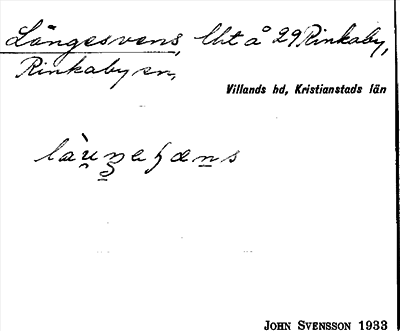 Långesvens, lht å 29 Rinkaby,
Rinkaby sn,
Villands hd, Kristianstads län
JOHN SVENSSON 1933